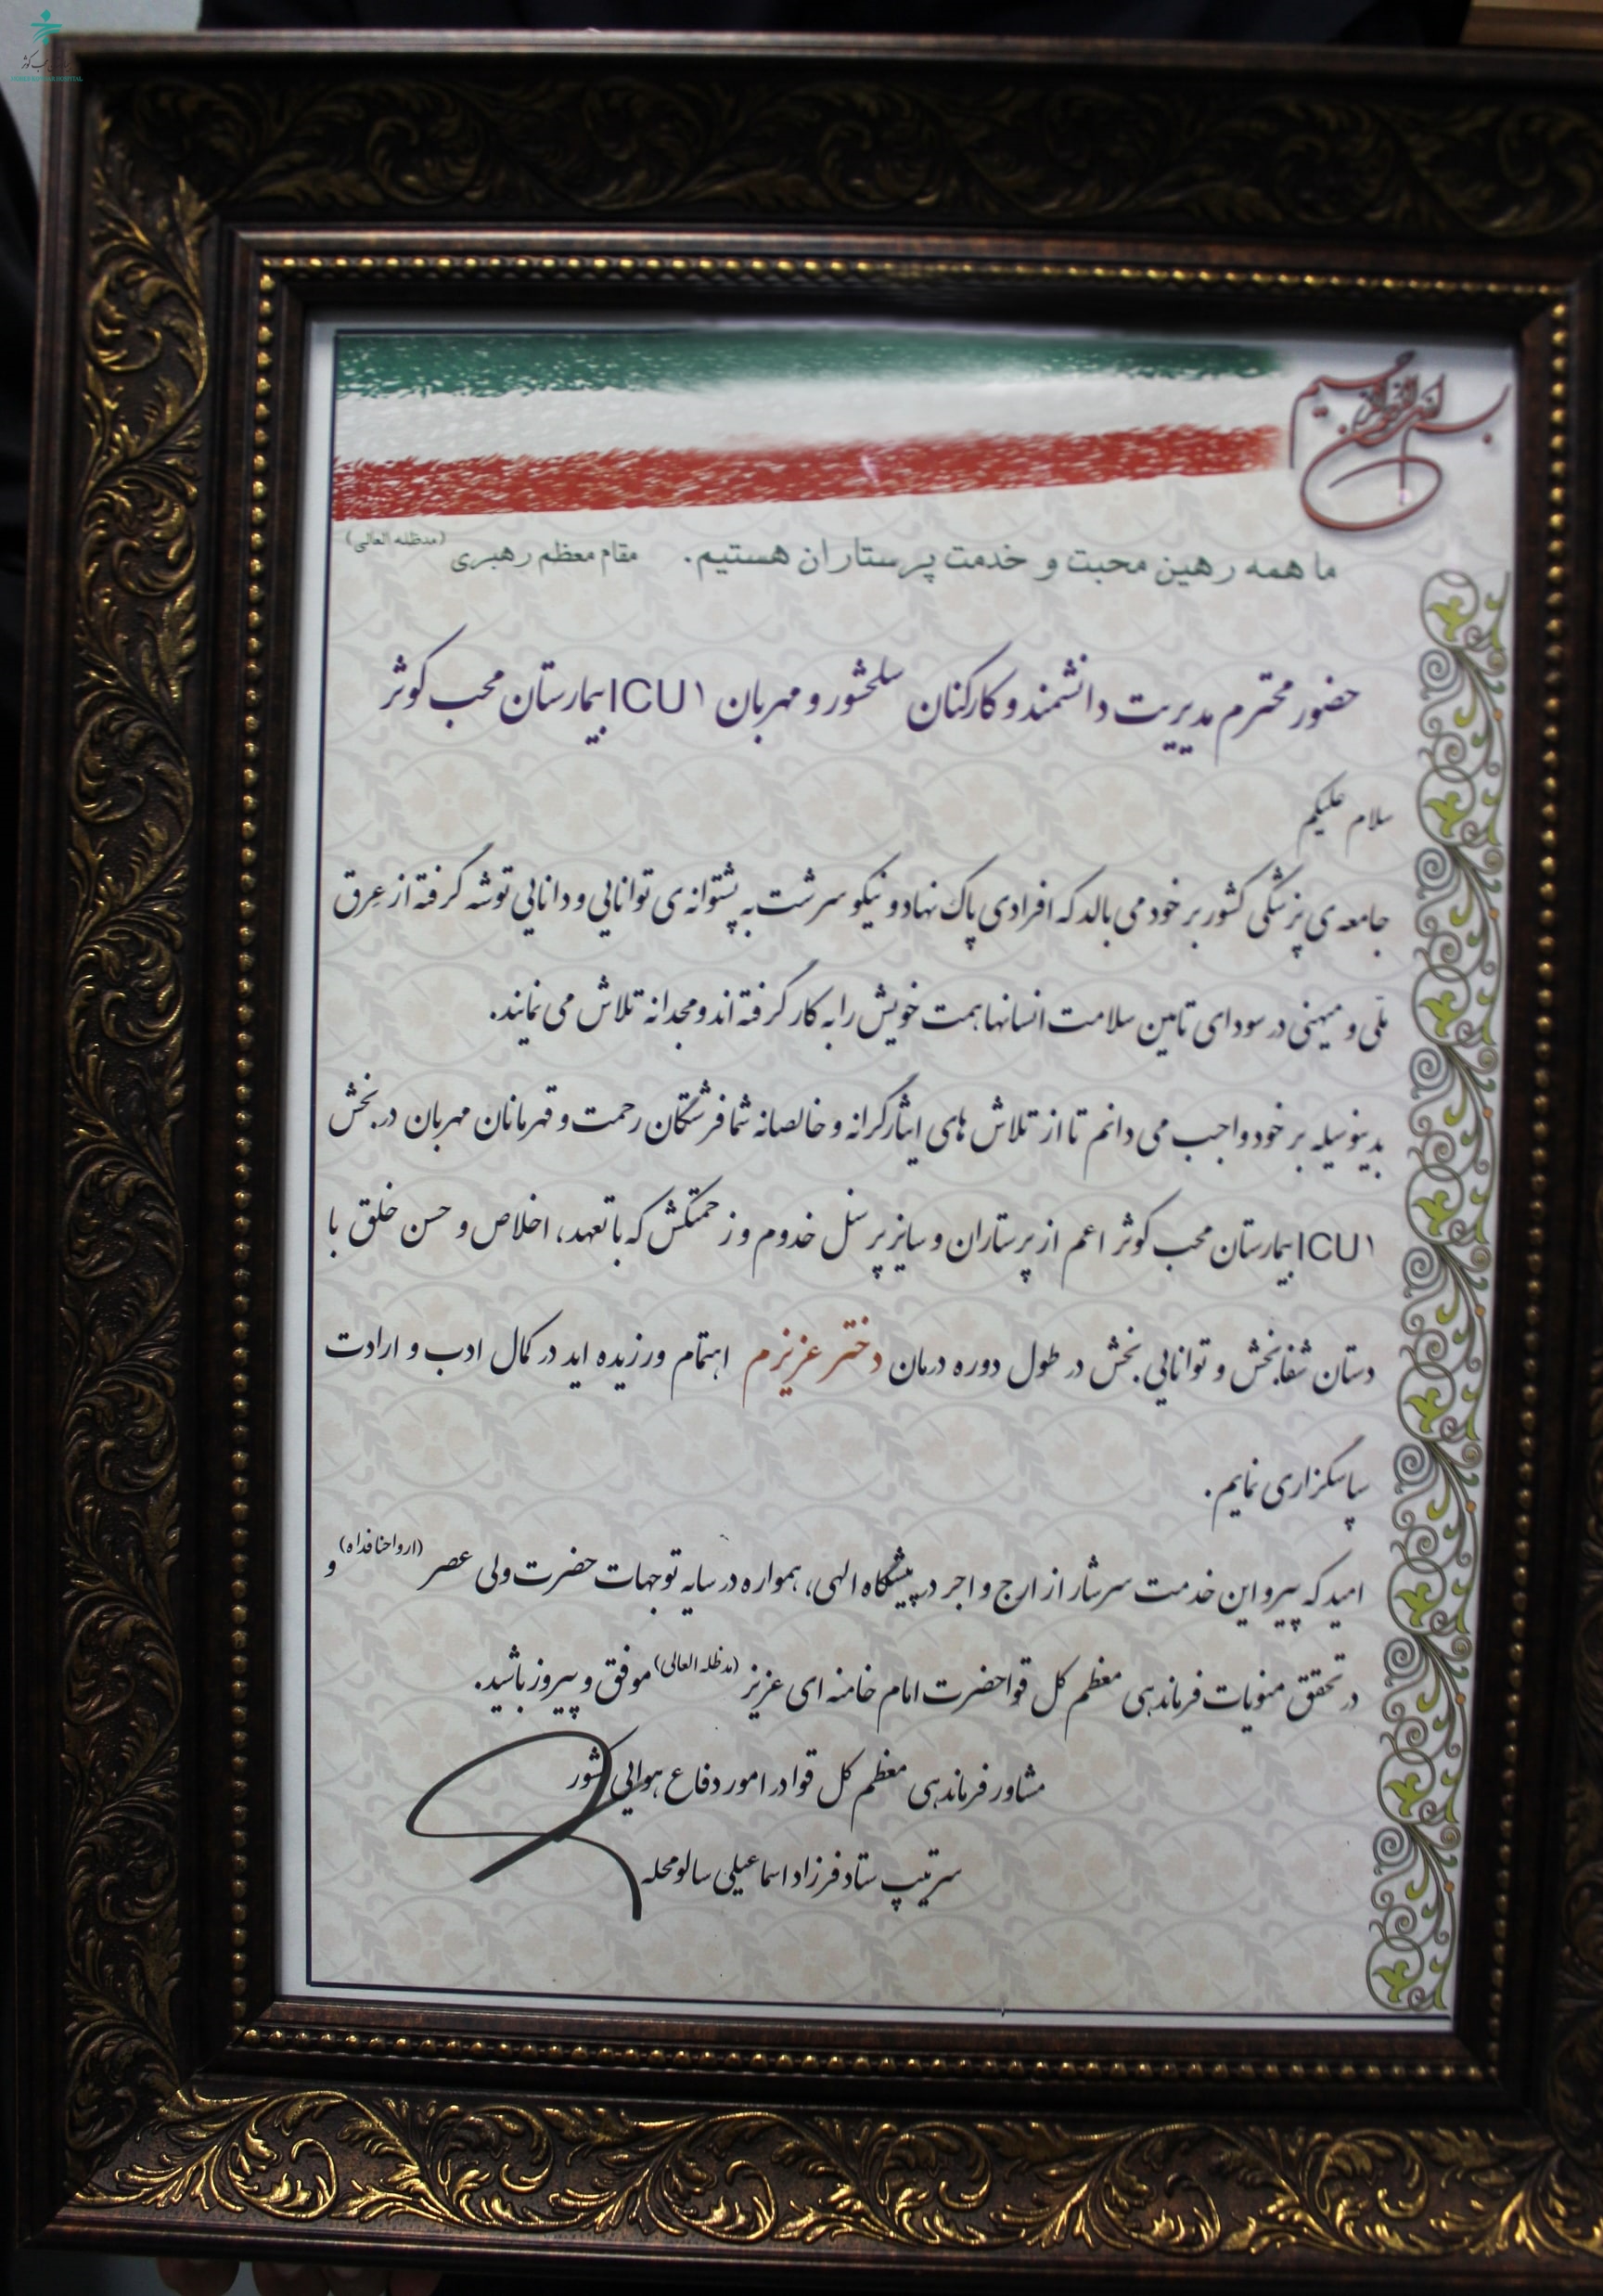 بسم الله الرحمن الرحیم
ما همه رهین محبت و خدمت پرستاران هستیم. مقام معظم رهبری (مدظله العالی)
حضور محترم مدیریت دانشمند و کارکنان سلحشور و مهربان ICU۱ بیمارستان محب کوثر
سلام علیکم
جامعه ی پزشکی کشور بر خود می بالد که افرادی پاک نهاد و نیکو سرشت به پشتوانه ی توانایی و دانایی توشه گرفته از عِرق
ملّی و میهنی در سودای تامین سلامت انسانها همت خویش را به کار گرفته اند و مجدانه تلاش می نمایند.
بدینوسیله بر خود واجب می دانم تا از تلاش های ایثارگرانه و خالصانه شما فرشتگان رحمت و قهرمانان مهربان در بخش
ICU۱ بیمارستان محب کوثر اعم از پرستاران و سایر پرسنل خدوم و زحمتکش که با تعهد، اخلاص و حسن خلق با
دستان شفابخش و توانایی بخش در طول دوره درمان دختر عزیزم اهتمام ورزیده اید در کمال ادب و ارادت
سپاسگزاری نمایم.
امید که پیرو این خدمت سرشار از ارج و اجر در پیشگاه الهی، همواره در سایه توجهات حضرت ولی عصر (ارواحنا فداه) و
در تحقق منویات فرماندهی معظم کل قوا حضرت امام خامنه ای عزیز (مدظله العالی) موفق و پیروز باشید.
مشاور فرماندهی معظم کل قوا در امور دفاع هوایی کشور
سرتیپ ستاد فرزاد اسماعیلی سالومحله